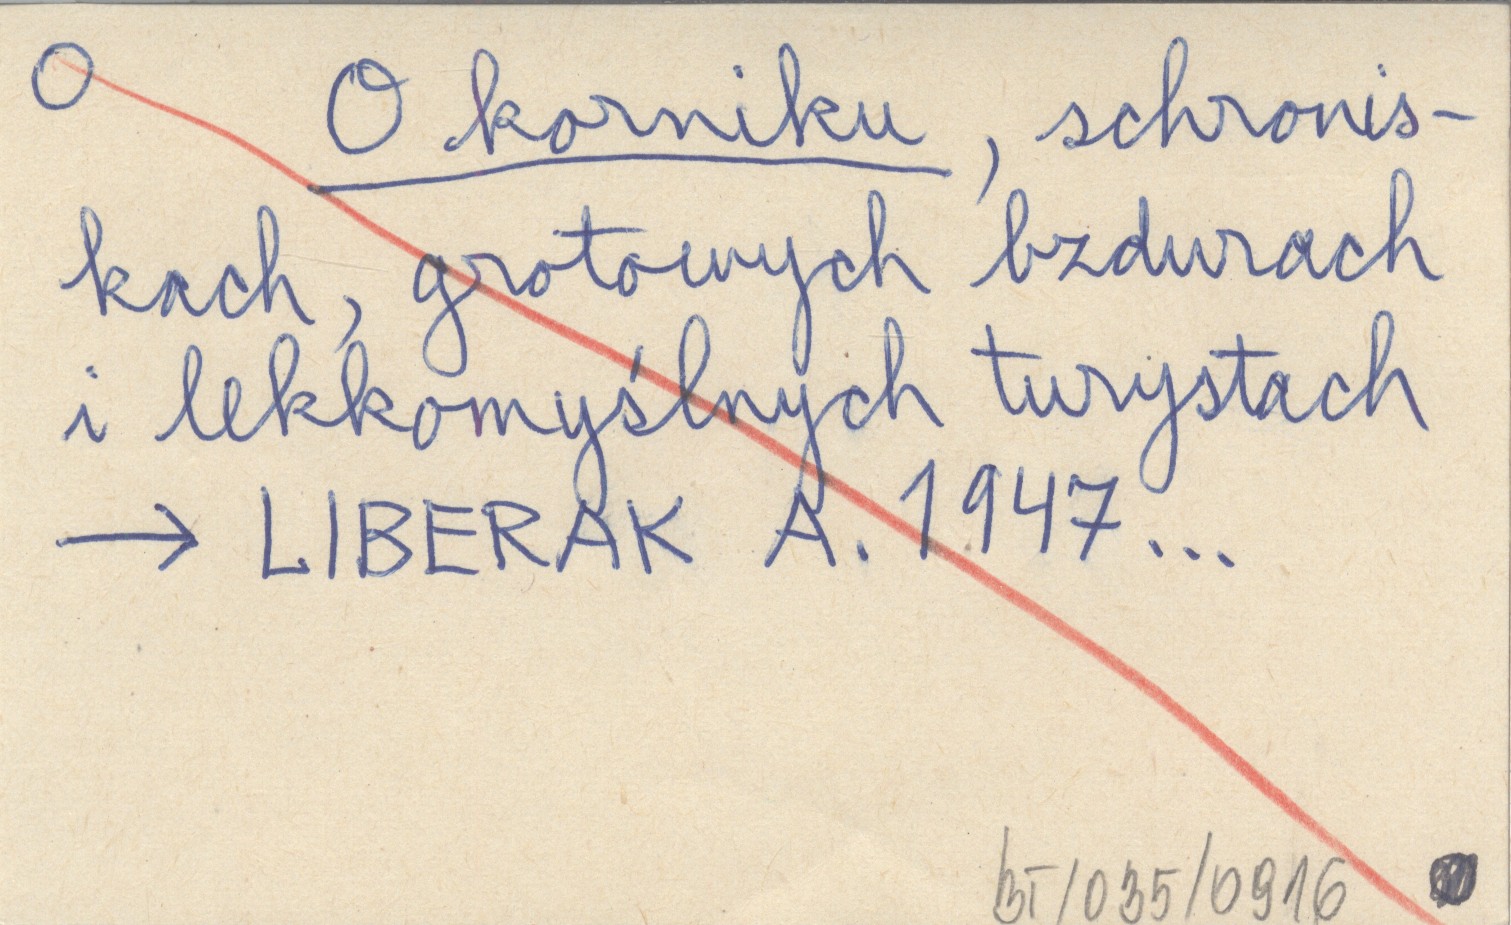 O
O korniku, schronis-
kach, grotowych bzdurach
i lekkomyślnych turystach
→ LIBERAK A. 1947...
BT/035/0916